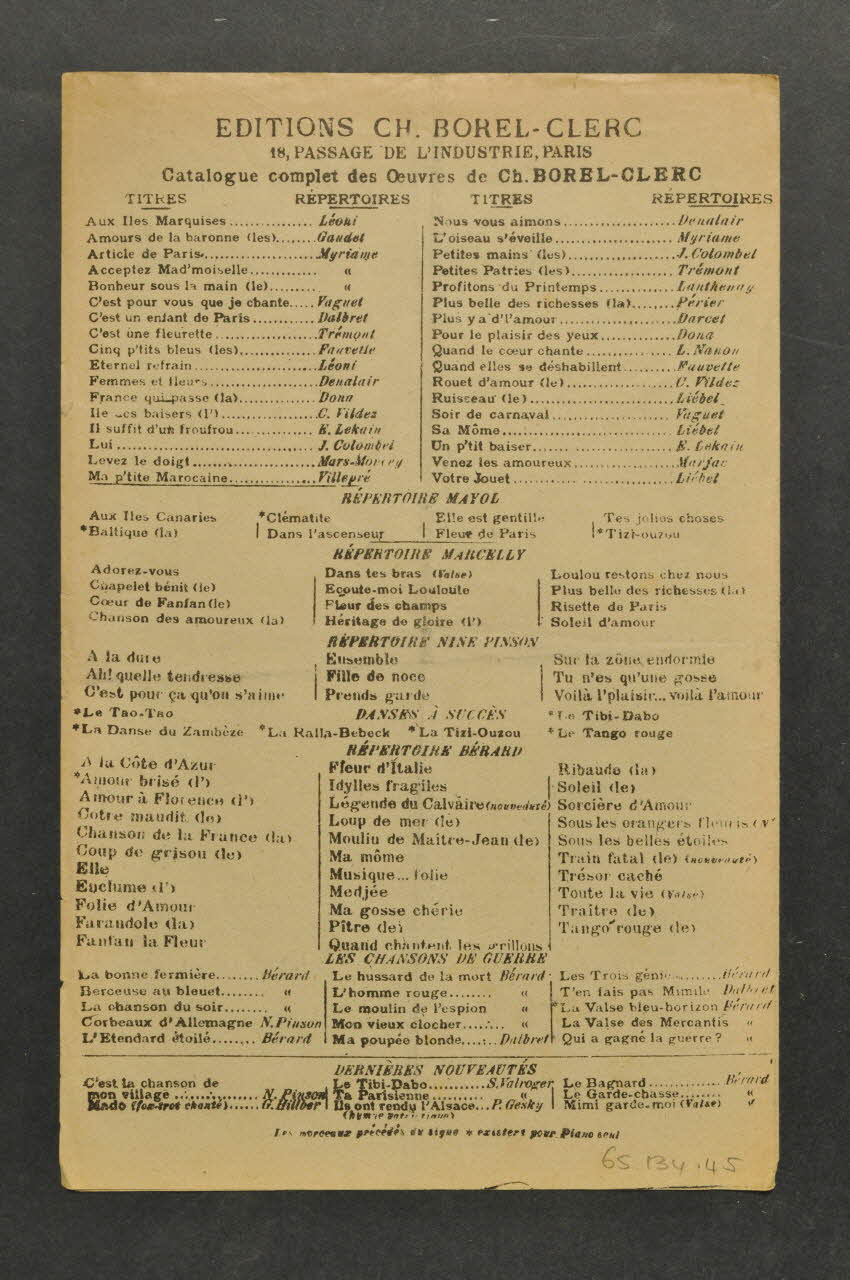 EDITIONS CH. BOREL-CLERC
18, PASSAGE DE L'INDUSTRIE, PARIS
Catalogue complet des Œuvres de Ch. BOREL-CLERC
TITRES RÉPERTOIRES
Aux Iles Marquises ............... Léoni
Amours de la baronne (les)....... Gaudet
Article de Paris..................... Myriame
Acceptez Mad'moiselle............ «
Bonheur sous la main (le)......... «
C'est pour vous que je chante..... Vaguet
C'est un enfant de Paris ........... Dalbret
C'est une fleurette ................... Trémont
Cinq p'tits bleus (les).............. Fauvette
Eternel refrain ..................... Léoni
Femmes et fleurs................... Denalair
France qui passe (la)............... Dona
Ile des baisers (l') ................. C. Vildez
Il suffit d'un froufrou .............. E. Lekain
Lui ................................... J. Colombel
Levez le doigt...................... Mars-Moncey
Ma p'tite Marocaine................ Villepré
TITRES RÉPERTOIRES
Nous vous aimons.................... Denalair
L'oiseau s'éveille ..................... Myriame
Petites mains (les).................... J. Colombel
Petites Patries (les)................... Trémont
Profitons du Printemps.............. Lanthenay
Plus belle des richesses (la)........ Périer
Plus y a d'l'amour ..................... Darcet
Pour le plaisir des yeux.............. Dona
Quand le cœur chante ............... L. Nanon
Quand elles se déshabillent......... Fauvette
Rouet d'amour (le) ................... C. Vildez
Ruisseau (le) .......................... Liébel
Soir de carnaval ...................... Vaguet
Sa Môme............................... Liébel
Un p'tit baiser......................... E. Lekain
Venez les amoureux.................. Marjac
Votre Jouet ............................ Liébel
RÉPERTOIRE MAYOL
Aux Iles Canaries *Clématite Elle est gentille Tes jolies choses
*Baltique (la) Dans l'ascenseur Fleur de Paris *Tizi-ouzou
RÉPERTOIRE MARCELLY
Adorez-vous Dans tes bras (Valse) Loulou restons chez nous
Chapelet bénit (le) Ecoute-moi Louloute Plus belle des richesses (la)
Cœur de Fanfan (le) Fleur des champs Risette de Paris
Chanson des amoureux (la) Héritage de gloire (l') Soleil d'amour
RÉPERTOIRE NINE PINSON
A la dure Ensemble Sur la zône endormie
Ah! quelle tendresse Fille de noce Tu n'es qu'une gosse
C'est pour ça qu'on s'aime Prends garde Voilà l'plaisir... voilà l'amour
*Le Tao-Tao DANSES À SUCCÈS *Le Tibi-Dabo
*La Danse du Zambèze *La Ralla-Bebeck *La Tizi-Ouzou *Le Tango rouge
RÉPERTOIRE BÉRARD
A la Côte d'Azur Fleur d'Italie Ribaude (la)
*Amour brisé (l') Idylles fragiles Soleil (le)
Amour à Florence (l') Légende du Calvaire (nouveauté) Sorcière d'Amour
Cotre maudit (le) Loup de mer (le) Sous les orangers fleuris
Chanson de la France (la) Moulin de Maître-Jean (le) Sous les belles étoiles
Coup de grisou (le) Ma môme Train fatal (le) (nouveauté)
Elle Musique... folie Trésor caché
Enclume (l') Medjée Toute la vie (Valse)
Folie d'Amour Ma gosse chérie Traître (le)
Farandole (la) Pître (le) Tango rouge (le)
Fanfan la Fleur Quand chantent les grillons
LES CHANSONS DE GUERRE
La bonne fermière........ Bérard Le hussard de la mort Bérard Les Trois génies ......... Bérard
Berceuse au bleuet........ « L'homme rouge........ « T'en fais pas Mimile Dalbret
La chanson du soir........ « Le moulin de l'espion « *La Valse bleu-horizon Bérard
Corbeaux d'Allemagne N. Pinson Mon vieux clocher........ « La Valse des Mercantis «
L'Etendard étoilé........ Bérard Ma poupée blonde...... Dalbret Qui a gagné la guerre ? «
DERNIÈRES NOUVEAUTÉS
C'est la chanson de Le Tibi-Dabo........... S. Valroger Le Bagnard ............. Bérard
mon village ............... N. Pinson Ta Parisienne .......... « Le Garde-chasse........ «
Mado (fox-trot chanté)...... G. Hillber Ils ont rendu l'Alsace... P. Gesky Mimi garde-moi (Valse) «
Les morceaux précédés du signe * existent pour Piano seul
65 134.45